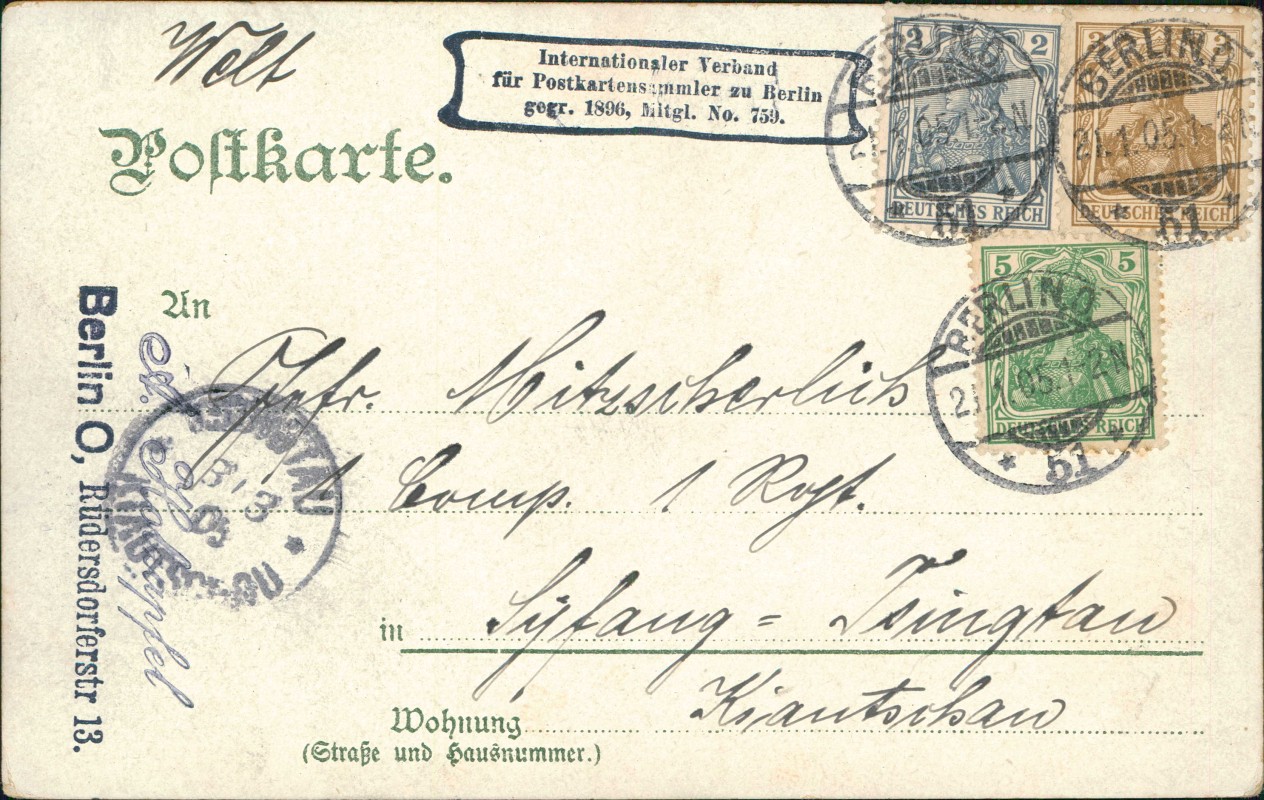 Welt
Internationaler Verband
für Postkartensammler zu Berlin
gegr. 1896, Mitgl. No. 759.
2 2
DEUTSCHES REICH
3 3
DEUTSCHES REICH
BERLIN.O
21.1.05.1-2N
* 51 *
BERLIN.O
21.1.05.1-2N
* 51 *
Postkarte.
5 5
DEUTSCHES REICH
BERLIN.O
21.1.05.1-2N
* 51 *
An
Gefr. Mitzscherlich
1 Comp. 1 Rgt.
in Syfang = Tsingtau
Kiautschau
Wohnung
(Straße und Hausnummer.)
TSINGTAU
3/3
05
KIAUTSCHOU
Berlin O, Rüdersdorferstr 13.